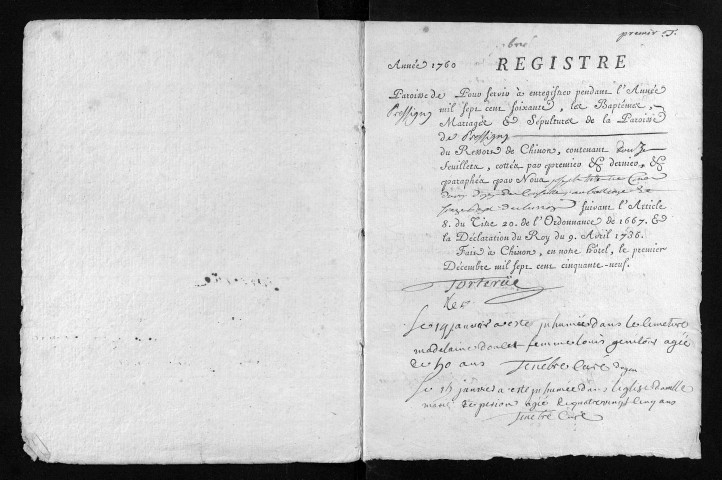 premier f.
Année 1760
REGISTRE
Paroisse de
Pressigny
Pour servir à enregistrer pendant l'Année
mil sept cent soixante, les Baptêmes,
Mariages & Sépultures de la Paroisse
de Pressigny
du Ressort de Chinon, contenant douze
feuillets, cottés par premier & dernier, &
paraphés par Nous
suivant l'Article
8. du Titre 20. de l'Ordonnance de 1667. &
la Déclaration du Roy du 9. Avril 1736.
Fait à Chinon, en notre hôtel, le premier
Décembre mil sept cent cinquante-neuf.
Torterüe
Le 14 janvier a este inhumée dans le cimetre
madelaine femme louis agée
de ans Tenebre Curé doyen
Le janvier a este inhumée dans leglise
marie agée de quatre vingt cinq ans
Tenebre Curé